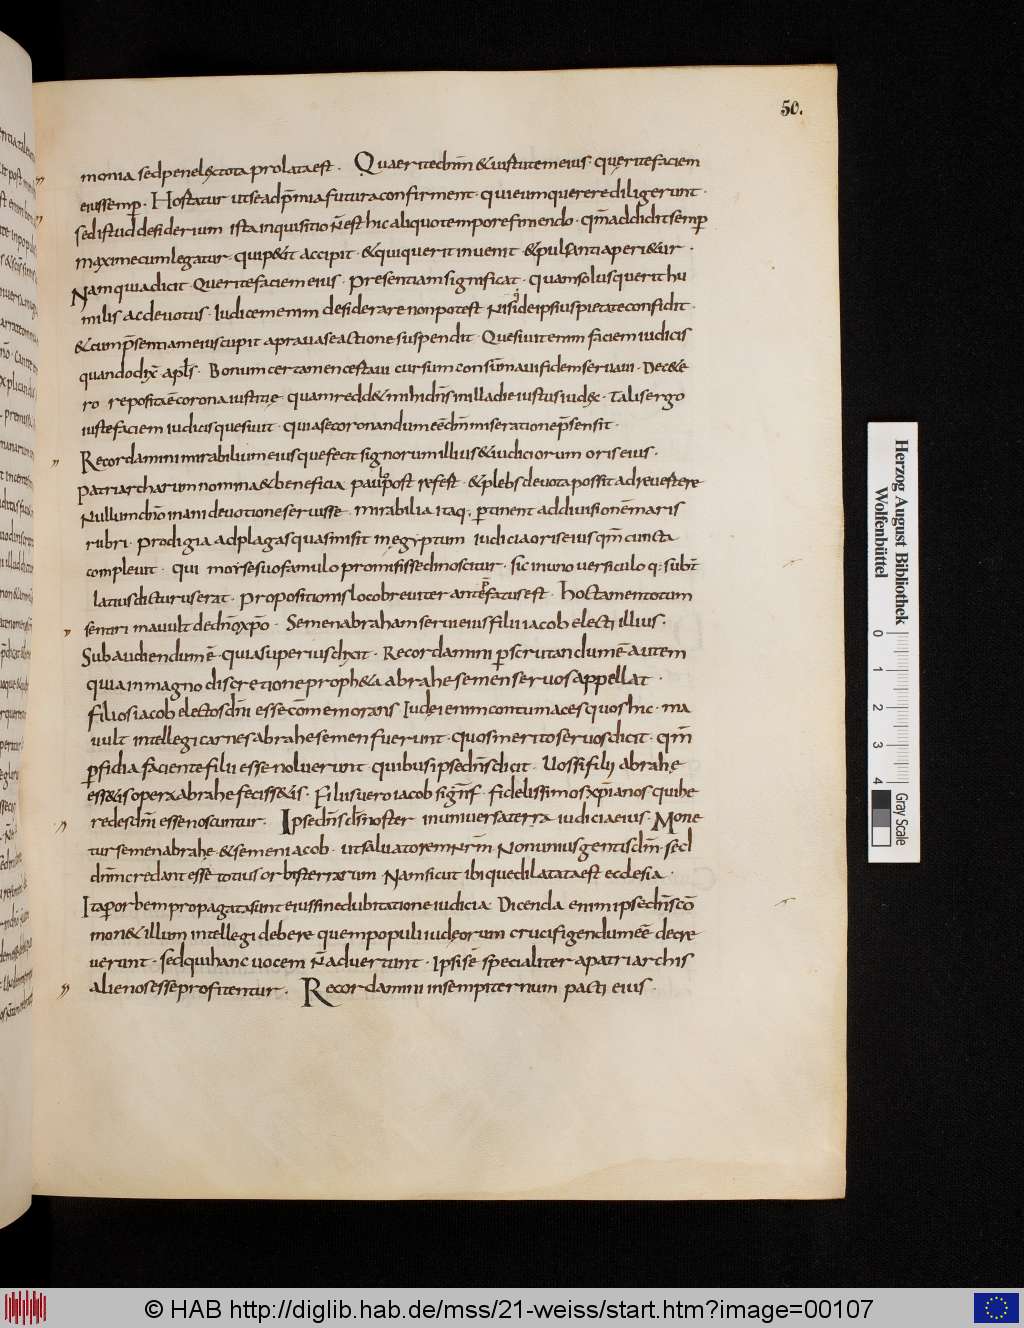 50.
monia sedpenelexctota prolataest. Quaeritednm̄ &uirtutemeius. queritefaciem
eiussemp̄. Hortatur utseadp̄mia futuraconfirment. quieumquerere diligerunt.
sedistuddesiderium istainquisitio n̄est hic aliquotemporefiniendo. qm̄addidit semp̄
maximecumlegatur. quip&it accipit. &quiquerit inuenit. &pulsantiaperi&ur.
Nam quia dicit. Queritefaciem eius. presentiam significat. quamsolusquerit hu
milis ac deuotus. Iudicemenim desiderare nonpotest nisideipsiuspietateconfidit.
&cump̄sentiameiuscupit aprauaseactione suspendit. Quesiuitenim faciemiudicis
quandodix̄ apl̄s. Bonum certamencertaui cursum consūmaui fidemseruaui. Dec&e
ro reposita ē corona iustitiȩ quamredd&mihidn̄sinilladie iustusiudex. Talisergo
iustefaciem iudicisquesiuit. quiasecoronandumeēdn̄imiserationep̄sensit.
Recordamini mirabilium eius quefecit signorum illius&iudiciorum oriseius.
Patriarcharum nomina&beneficia paulopost refert. &plebsdeuotapossitadreuertere
Nullumdn̄o inani deuotioneseruisse. mirabilia itaq; p̄tinent addiuisionēmaris
rubri. prodigia adplagasquasmisit inegyptum iudiciaoriseiusqm̄cuncta
compleuit. qui moysesuofamulo promisissedinoscitur. sic inuno uersiculo q; subt̄
latiusdicturuserat. propositionislocobreuiter antep̄fatusest. hoctamentotum
sentiri mauult dedn̄oxp̄o. Semenabrahamserui eius filii iacob electi illius.
Subaudiendumē. quiasuperiusdixit. Recordamini p̄scrutandumē autem
quiainmagno discretioneproph&a abrahe semenseruosappellat.
filiosiacob electosdn̄i esse cōmemorans Iudei enimcontumacesquoshic. ma
uult intellegi carnesabrahesemen fuerunt. quosmeritoseruosdicit. qm̄
p̄fidia facientefilii esse noluerunt quibusipsedn̄sdicit. Uossifilii abrahe
ess&isopera abrahe feciss&is. Filiusuero iacob signif̄. fidelissimosxp̄ianos quihe
redesdn̄i essenoscuntur. Ipsedn̄sds̄noster inuniuersaterra iudiciaeius. Mone
tursemenabrahe. &semeniacob. utsaluatoremnr̄m Nonuniusgentisdm̄. sed
dn̄mcredant esse totius orbisterrarum Namsicut ibiquedilatataest ecclesia.
Itap̄orbem propagatasunt eiussinedubitationeiudicia Dicenda enimipsedn̄scō
mon&illum intellegi debere quempopuli iudeorum crucifigendumeē decre
uerunt. sedquihanc uocem n̄aduertunt. ipsisē specialiter apatriarchis
alienosesseprofitentur. Recordamini insempiternum pacti eius.
Herzog August Bibliothek
Wolfenbüttel
0 1 2 3 4
Gray Scale
© HAB http://diglib.hab.de/mss/21-weiss/start.htm?image=00107